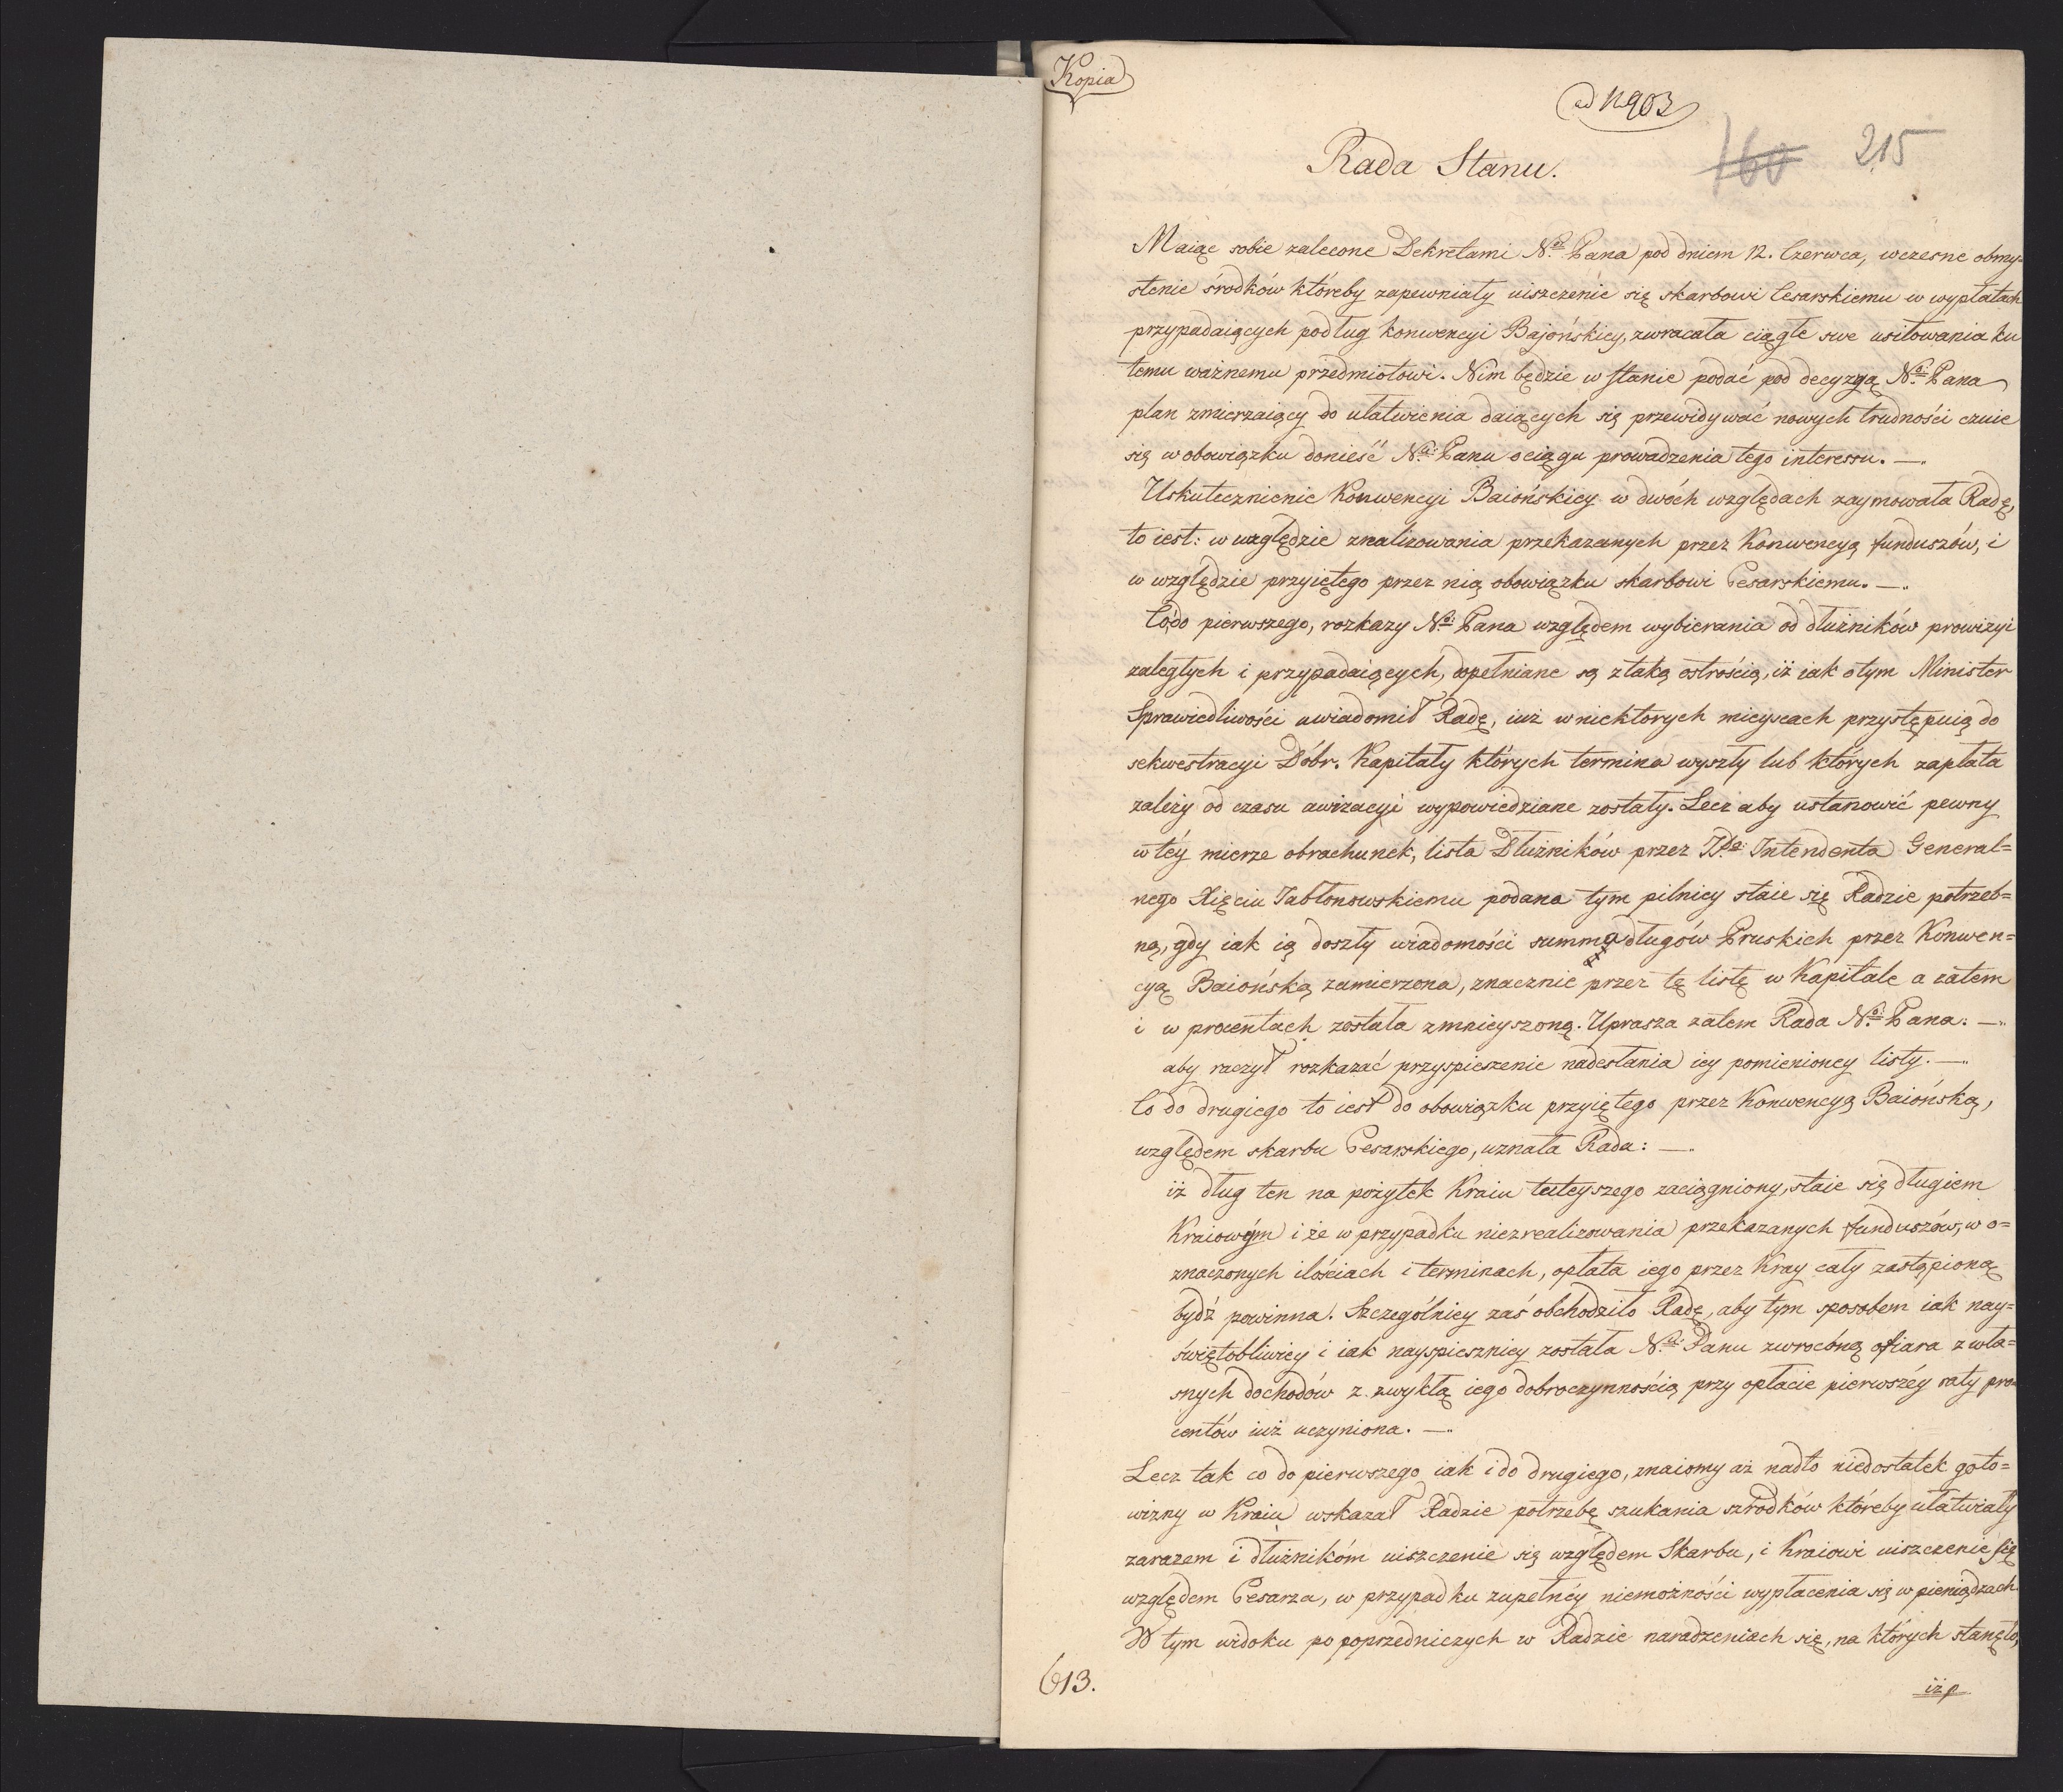 Kopia
ad N 903
160 215
Rada Stanu.
Maiąc sobie zalecone Dekretami N.º Pana pod dniem 12. Czerwca, wczesne obmy=
slenie środków któreby zapewniały uiszczenie się skarbowi Cesarskiemu w wypłatach
przypadaiących podług konwencyi Bajońskiey, zwracała ciągle swe usiłowania ku
temu ważnemu przedmiotowi. Nim będzie w stanie podać pod decyzyą N.º Pana
plan zmierzaiący do ułatwienia daiących się przewidywać nowych trudności czuie
się w obowiązku donieść N.º Panu o ciągu prowadzenia tego interessu. —.
Uskutecznienie Konwencyi Baiońskiey w dwóch względach zaymowała Radę,
to iest: w względzie zrealizowania przekazanych przez Konwencyą funduszów, i
w względzie przyiętego przez nią obowiązku skarbowi Cesarskiemu. —.
Co do pierwszego, rozkazy N.º Pana względem wybierania od dłużników prowizyi
zaległych i przypadaiących, dopełniane są z taką ostrością, iż iak o tym Minister
Sprawiedliwości uwiadomił Radę, iuż w niektorych mieyscach przystępuią do
sekwestracyi Dóbr. Kapitały których termina wyszły lub których zapłata
zależy od czasu awizacyi wypowiedziane zostały. Lecz aby ustanowić pewny
w téy mierze obrachunek, lista Dłużników przez Intendenta General=
nego Xięciu Jabłonowskiemu podana tym pilniey staie się Radzie potrzeb=
ną, gdy iak ią doszły wiadomości summa długów Pruskich przez Konwen=
cyą Baiońską zamierzona, znacznie przez tę listę w Kapitale a zatem
i w procentach została zmnieyszoną. Uprasza zatem Rada N.º Pana: —.
aby raczył rozkazać przyspieszenie nadesłania iey pomienioney listy. —.
Co do drugiego to iest do obowiązku przyiętego przez Konwencyą Baiońską,
względem skarbu Cesarskiego, uznała Rada: —.
iż dług ten na pożytek Kraiu tuteyszego zaciągniony, staie się długiem
Kraiowym i że w przypadku niezrealizowania przekazanych funduszów, w o=
znaczonych ilościach i terminach, opłata iego przez Kray cały zastąpioną
bydź powinna. Szczególniey zaś obchodziło Radę, aby tym sposobem iak nay=
świętobliwiey i iak nayspieszniey została N.º Panu zwróconą ofiara z wła=
snych dochodów z zwykłą iego dobroczynnością przy opłacie pierwszéy raty pro=
centów iuż uczyniona. —.
Lecz tak co do pierwszego iak i do drugiego, znaiomy aż nadto niedostatek goto=
wizny w Kraiu wskazał Radzie potrzebę szukania szrodków któreby ułatwiały
zarazem i dłużnikóm uiszczenie się względem Skarbu, i Kraiowi uiszczenie się
względem Cesarza, w przypadku zupełnéy niemożności wypłacenia się w pieniądzach.
W tym widoku po poprzedniczych w Radzie naradzeniach się, na których stanęło,
613.
iż p